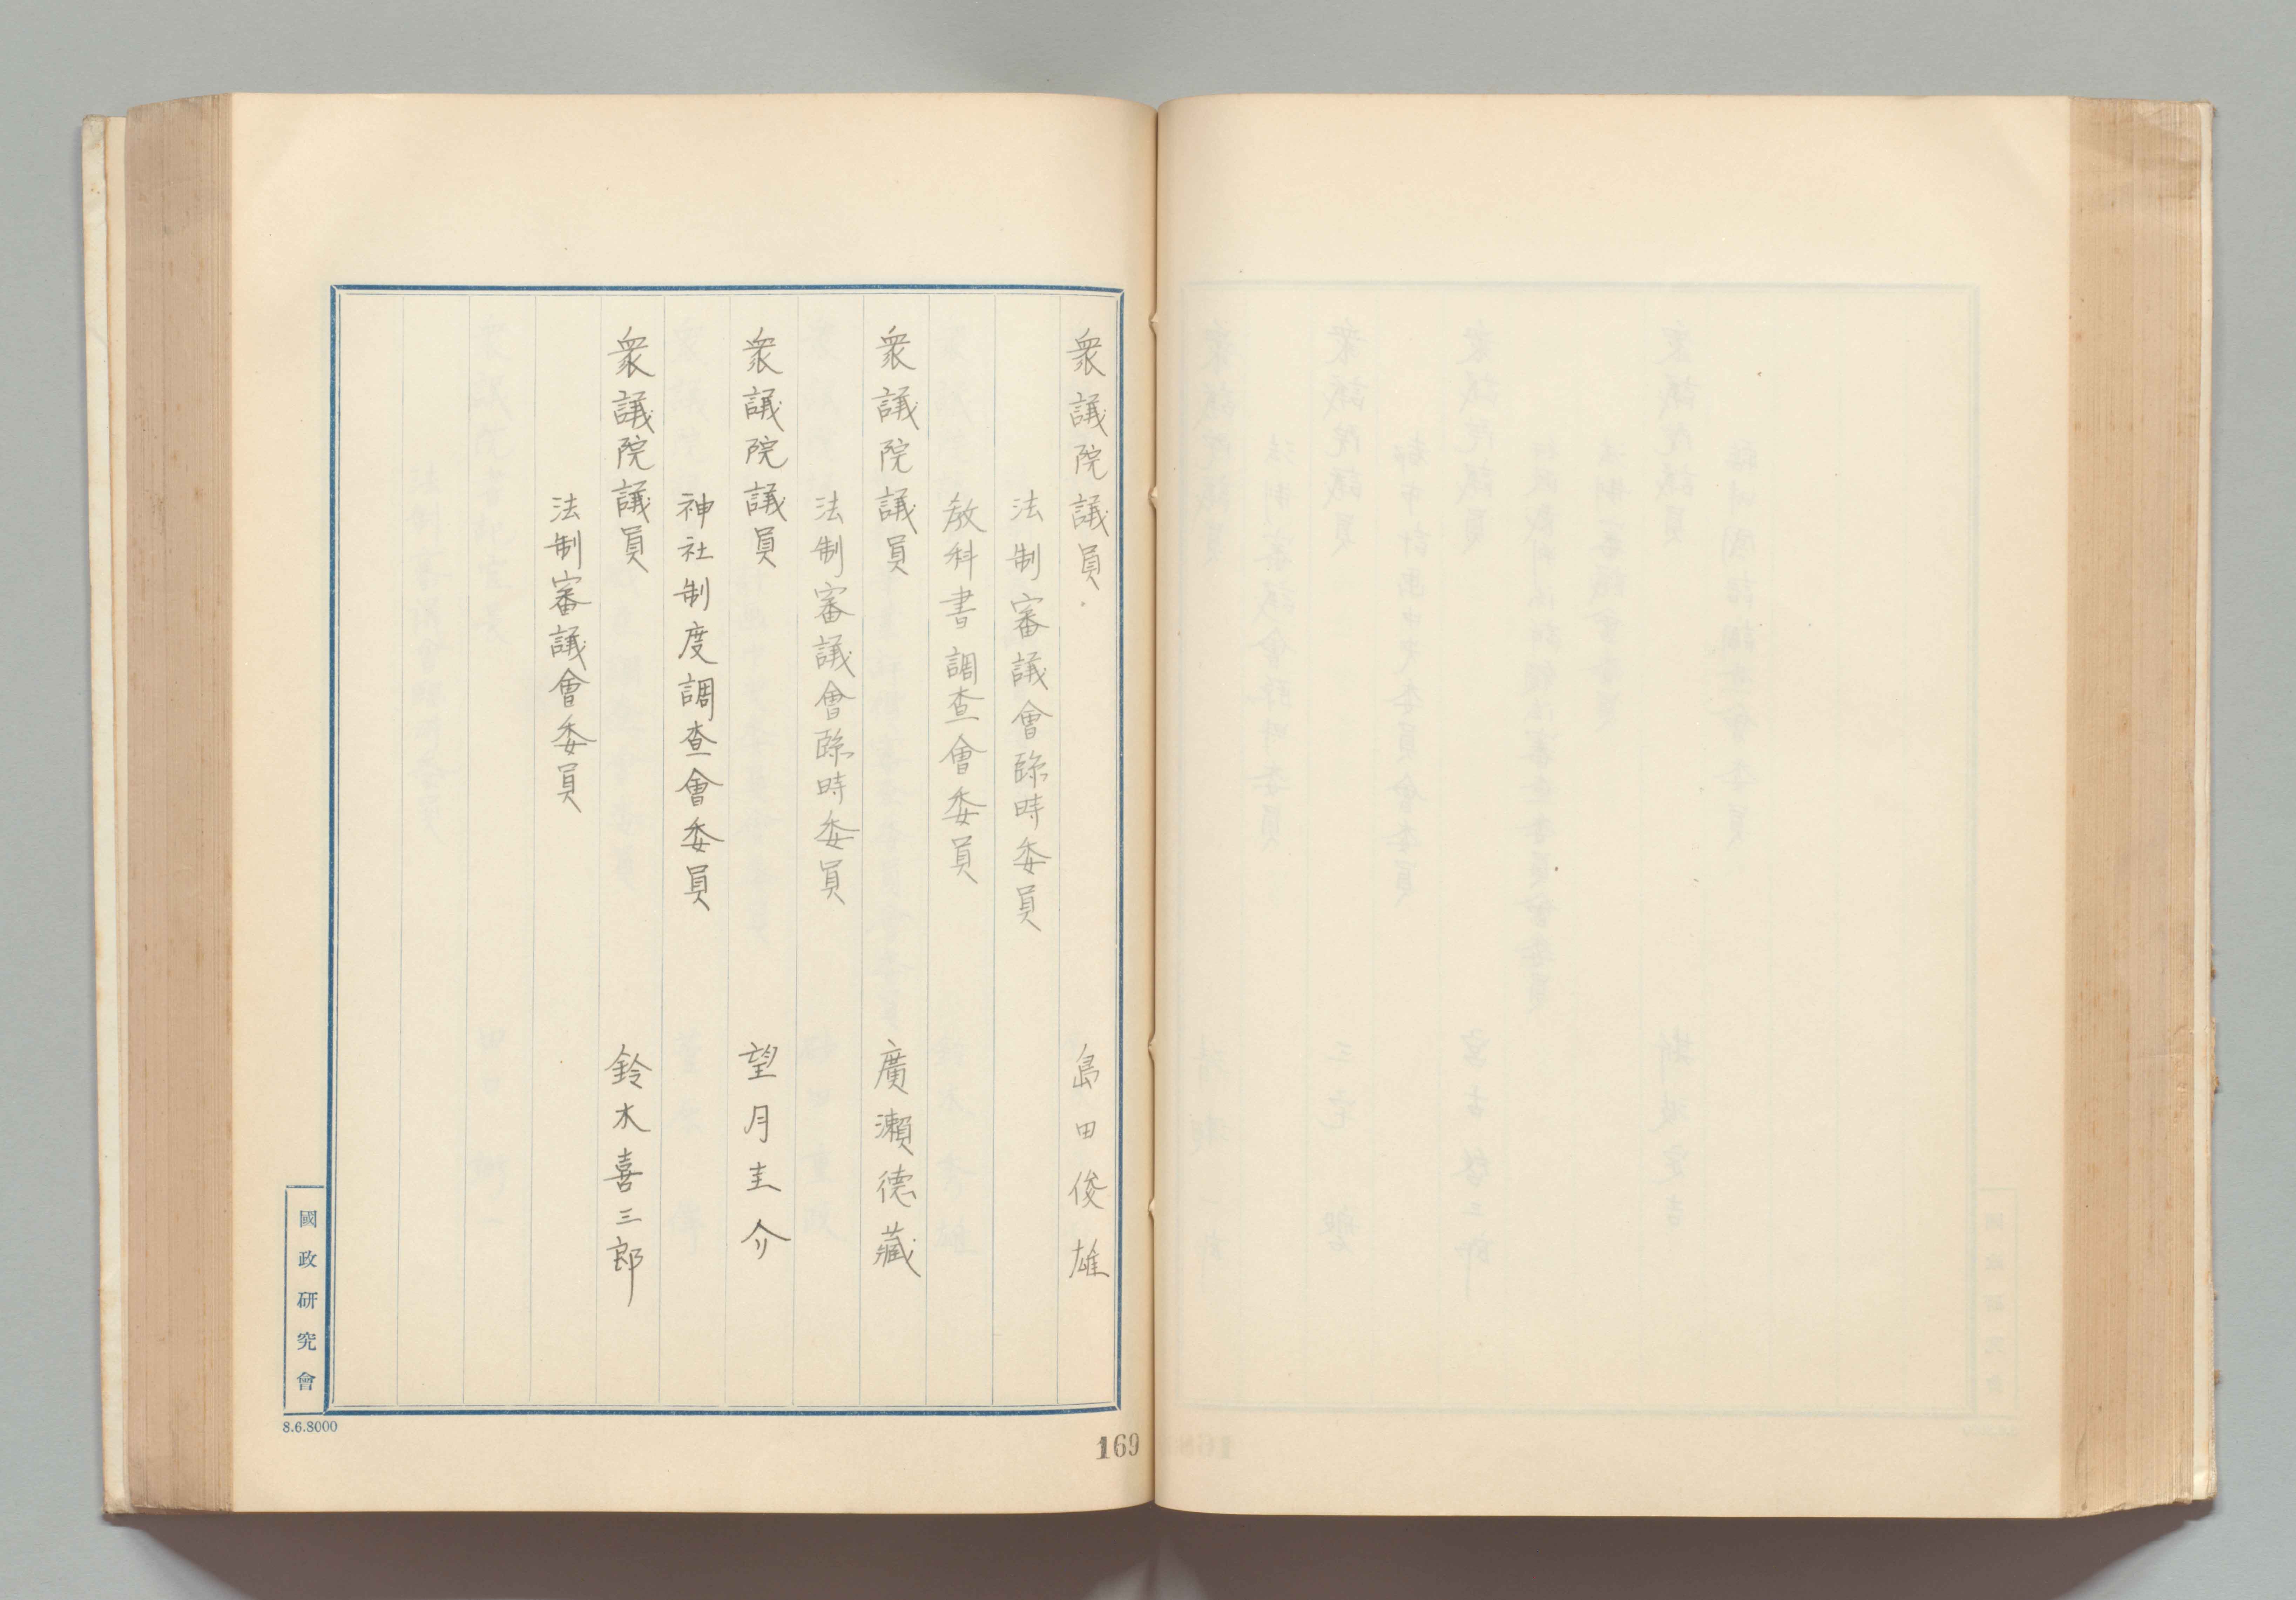 衆議院議員　島田俊雄
法制審議會臨時委員
教科書調査會委員
衆議院議員　廣瀬德藏
法制審議會臨時委員
衆議院議員　望月圭介
神社制度調査會委員
衆議院議員　鈴木喜三郎
法制審議會委員
國政研究會
8.6.8000
169